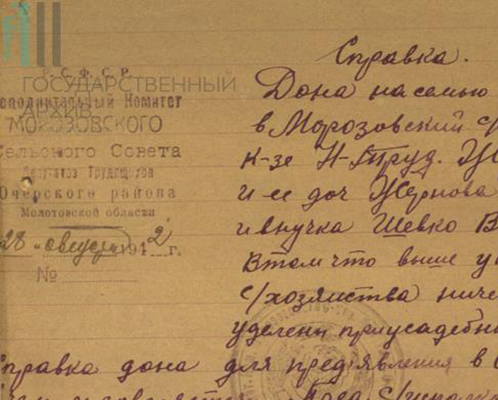 Р.С.Ф.С.Р.
ГОСУДАРСТВЕННЫЙ
АРХИВ
Исполнительный Комитет
МОРОЗОВСКОГО
Сельского Совета
Депутатов Трудящихся
Очерского района
Молотовской области
28 " августа 194 2 г.
№
Справка.
Дона на семью
в Морозовский с/
к-зе Н-Труд.
и ее доч Жернова
и внучка Шевко В
в том что выше у
с/хозяйства ниче
уделены приусадебны
справка дона для предявления в